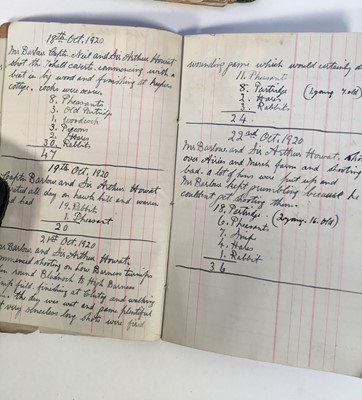 18th Oct. 1920
Mr Barlow. Captn. Neil and Sir Arthur Howat
shot the small coverts. commencing with a
beat in by wood and finishing at
cottage. cocks were scarce.
8. Pheasants
3. Old Partridge
1. Woodcock
3. Pigeons
2. Hares
30. Rabbits
47
19th Oct. 1920
Captn Barlow and Sir Arthur Howat
ferreted all day on hawk hill and warren
and had 19. Rabbits
1. Pheasant
20
21st Oct. 1920
Barlow and Sir Arthur Howat.
commenced shooting on low Barness turnips
round Bladnoch to High Barness
turnip field. finishing at and walking
the day was wet and game plentiful
very senseless long shots were fired
wounding game which would certainly d
11. Pheasants
8. Partridge (1 young 7. old)
2. Hares
3. Rabbits
24.
22nd Oct. 1920
Mr Barlow, and Sir Arthur Howat, shot
over Airies and March farm and shooting
bad. a lot of birds were put up and
Mr Barlow kept grumbling because he
couldent get shooting them.
18. Partridge (2 young. 16. old)
6. Pheasants
7. Snipe
4. Hares
1. Rabbit
36